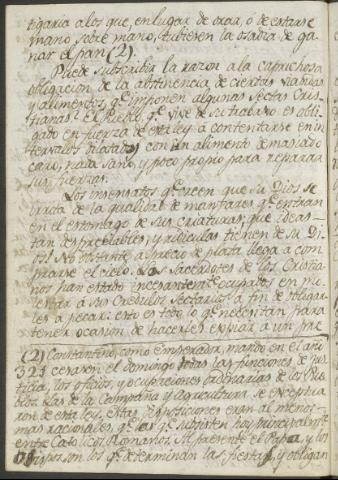 tigaria a los que, en lugar de orar, ó de estarse
mano sobre mano, tubieren la osadia de ga-
nar el pan (2).
Puede subscribir la razon a la caprichosa
obligacion de la abstinencia de ciertas viandas
y alimentos, qe. imponen algunas Sectas Cris-
tianas? El Pueblo, qe. vive de su trabajo es obli-
gado en fuerza de esta ley á contentarse en in-
tervalos dilatados con un alimento demasiado
caro, nada sano, y poco propio para reparar
sus fuerzas.
Los insensatos qe. creen que su Dios se
irrita de la qualidad de manjares qe. entran
en el estomago de sus criaturas, que ideas
tan despreciables, y ridiculas tienen de su Di-
os! No obstante a precio de plata llega á com-
prarse el cielo. Los Sacerdotes de los Cristia-
nos han estado incesantemente ocupados en in-
ventar á sus Credulos Sectarios a fin de obligar-
les a pecar: esto es todo lo qe. necesitan para
tener ocasion de hacerles expiar á un pre
(2) Constantino, como Emperador, mandó en el año
321 cesaren el domingo todas las funciones de jus-
ticia, los oficios, y ocupaciones ordinarias de los Pue-
blos. Las de la Campaña y agricultura se exceptua-
ron de esta ley. Estas disposiciones eran al menos
mas racionales, qe. las qe. subsisten hoy principalmente
entre Catolicos Romanos. Al presente el Papa, y los
Obispos son los qe. determinan las fiestas, y obligan